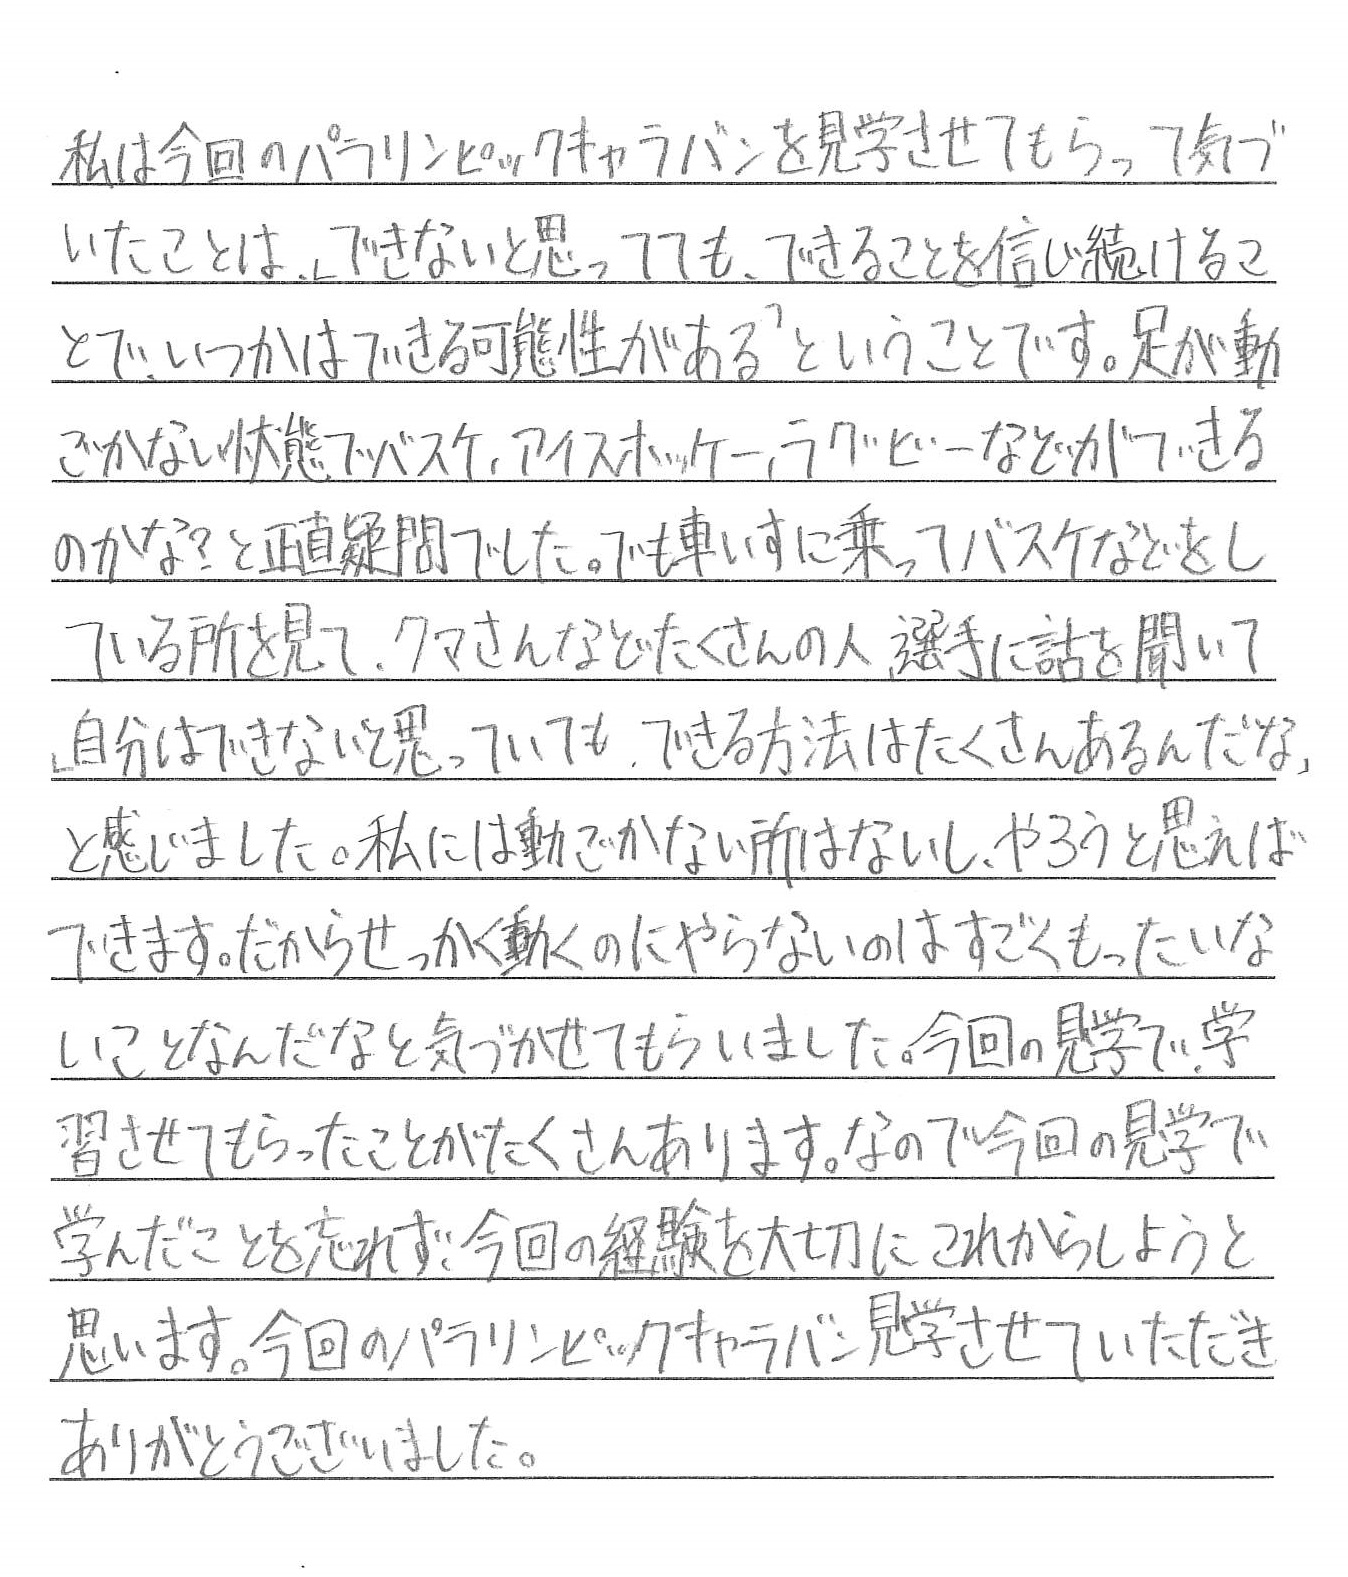 私は今回のパラリンピックキャラバンを見学させてもらって気づ
いたことは、「できないと思ってても、できることを信じ続けるこ
とで、いつかはできる可能性がある」ということです。足が動
ごかない状態でバスケ、アイスホッケー、ラグビーなどができる
のかな?と正直疑問でした。でも車いすに乗ってバスケなどをし
ている所を見て、クマさんなどたくさんの人、選手に話を聞いて
「自分はできないと思っていても、できる方法はたくさんあるんだな」
と感じました。私には動ごかない所はないし、やろうと思えば
できます。だからせっかく動くのにやらないのはすごくもったいな
いことなんだなと気づかせてもらいました。今回の見学で、学
習させてもらったことがたくさんあります。なので今回の見学で
学んだことを忘れずに今回の経験を大切にこれからしようと
思います。今回のパラリンピックキャラバン見学させていただき
ありがとうございました。